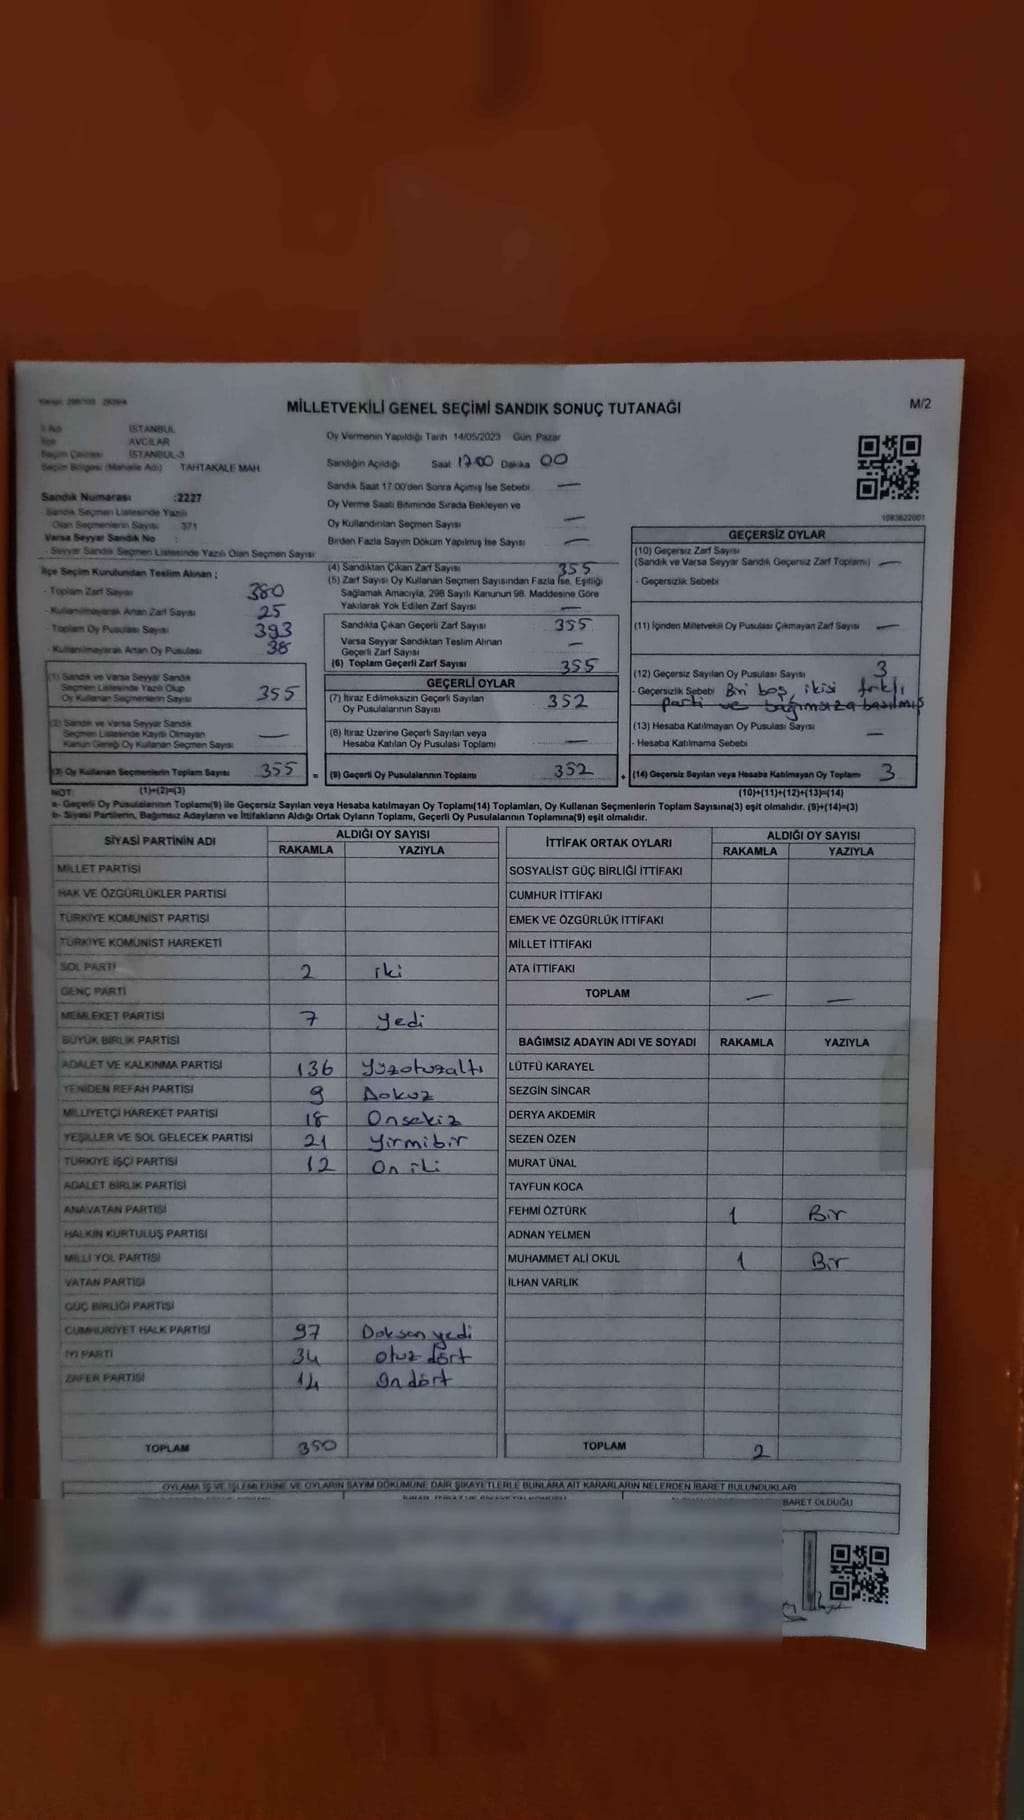 MİLLETVEKİLİ GENEL SEÇİMİ SANDIK SONUÇ TUTANAĞI
M/2
İl Adı İSTANBUL
İlçe AVCILAR
Seçim Çevresi İSTANBUL-3
Seçim Bölgesi (Mahalle Adı) TAHTAKALE MAH
Sandık Numarası :2227
Sandık Seçmen Listesinde Yazılı
Olan Seçmenlerin Sayısı 371
Varsa Seyyar Sandık No :
- Seyyar Sandık Seçmen Listesinde Yazılı Olan Seçmen Sayısı
Oy Vermenin Yapıldığı Tarih 14/05/2023 Gün Pazar
Sandığın Açıldığı Saat 17.00 Dakika 00
Sandık Saat 17.00'den Sonra Açımış İse Sebebi —
Oy Verme Saati Bitiminde Sırada Bekleyen ve
Oy Kullandırılan Seçmen Sayısı —
Birden Fazla Sayım Döküm Yapılmış İse Sayısı —
1083622001
İlçe Seçim Kurulundan Teslim Alınan ;
- Toplam Zarf Sayısı 380
- Kullanılmayarak Artan Zarf Sayısı 25
- Toplam Oy Pusulası Sayısı 393
- Kullanılmayarak Artan Oy Pusulası 38
(1) Sandık ve Varsa Seyyar Sandık
Seçmen Listesinde Yazılı Olup
Oy Kullanan Seçmenlerin Sayısı 355
(2) Sandık ve Varsa Seyyar Sandık
Seçmen Listesinde Kayıtlı Olmayan
Kanun Gereği Oy Kullanan Seçmen Sayısı —
(3) Oy Kullanan Seçmenlerin Toplam Sayısı 355 =
(4) Sandıktan Çıkan Zarf Sayısı 355
(5) Zarf Sayısı Oy Kullanan Seçmen Sayısından Fazla İse, Eşitliği
Sağlamak Amacıyla, 298 Sayılı Kanunun 98. Maddesine Göre
Yakılarak Yok Edilen Zarf Sayısı —
Sandıkta Çıkan Geçerli Zarf Sayısı 355
Varsa Seyyar Sandıktan Teslim Alınan
Geçerli Zarf Sayısı —
(6) Toplam Geçerli Zarf Sayısı 355
GEÇERLİ OYLAR
(7) İtiraz Edilmeksizin Geçerli Sayılan
Oy Pusulalarının Sayısı 352
(8) İtiraz Üzerine Geçerli Sayılan veya
Hesaba Katılan Oy Pusulası Toplamı —
(9) Geçerli Oy Pusulalarının Toplamı 352 +
GEÇERSİZ OYLAR
(10) Geçersiz Zarf Sayısı
(Sandık ve Varsa Seyyar Sandık Geçersiz Zarf Toplamı) —
- Geçersizlik Sebebi
(11) İçinden Milletvekili Oy Pusulası Çıkmayan Zarf Sayısı —
(12) Geçersiz Sayılan Oy Pusulası Sayısı 3
- Geçersizlik Sebebi Biri boş, ikisi farklı
parti ve bağımsıza basılmış
(13) Hesaba Katılmayan Oy Pusulası Sayısı —
- Hesaba Katılmama Sebebi
(14) Geçersiz Sayılan veya Hesaba Katılmayan Oy Toplamı 3
NOT: (1)+(2)=(3)
(10)+(11)+(12)+(13)=(14)
a- Geçerli Oy Pusulalarının Toplamı(9) ile Geçersiz Sayılan veya Hesaba katılmayan Oy Toplamı(14) Toplamları, Oy Kullanan Seçmenlerin Toplam Sayısına(3) eşit olmalıdır. (9)+(14)=(3)
b- Siyasi Partilerin, Bağımsız Adayların ve İttifakların Aldığı Ortak Oyların Toplamı, Geçerli Oy Pusulalarının Toplamına(9) eşit olmalıdır.
SİYASİ PARTİNİN ADI ALDIĞI OY SAYISI
RAKAMLA YAZIYLA
MİLLET PARTİSİ
HAK VE ÖZGÜRLÜKLER PARTİSİ
TÜRKİYE KOMÜNİST PARTİSİ
TÜRKİYE KOMÜNİST HAREKETİ
SOL PARTİ 2 iki
GENÇ PARTİ
MEMLEKET PARTİSİ 7 yedi
BÜYÜK BİRLİK PARTİSİ
ADALET VE KALKINMA PARTİSİ 136 Yüzotuzaltı
YENİDEN REFAH PARTİSİ 9 Dokuz
MİLLİYETÇİ HAREKET PARTİSİ 18 Onsekiz
YEŞİLLER VE SOL GELECEK PARTİSİ 21 Yirmibir
TÜRKİYE İŞÇİ PARTİSİ 12 On iki
ADALET BİRLİK PARTİSİ
ANAVATAN PARTİSİ
HALKIN KURTULUŞ PARTİSİ
MİLLİ YOL PARTİSİ
VATAN PARTİSİ
GÜÇ BİRLİĞİ PARTİSİ
CUMHURİYET HALK PARTİSİ 97 Doksan yedi
İYİ PARTİ 34 otuz dört
ZAFER PARTİSİ 14 On dört
TOPLAM 350
İTTİFAK ORTAK OYLARI ALDIĞI OY SAYISI
RAKAMLA YAZIYLA
SOSYALİST GÜÇ BİRLİĞİ İTTİFAKI
CUMHUR İTTİFAKI
EMEK VE ÖZGÜRLÜK İTTİFAKI
MİLLET İTTİFAKI
ATA İTTİFAKI
TOPLAM — —
BAĞIMSIZ ADAYIN ADI VE SOYADI RAKAMLA YAZIYLA
LÜTFÜ KARAYEL
SEZGİN SİNCAR
DERYA AKDEMİR
SEZEN ÖZEN
MURAT ÜNAL
TAYFUN KOCA
FEHMİ ÖZTÜRK 1 Bir
ADNAN YELMEN
MUHAMMET ALİ OKUL 1 Bir
İLHAN VARLIK
TOPLAM 2
OYLAMA İŞ VE İŞLEMLERİNE VE OYLARIN SAYIM DÖKÜMÜNE DAİR ŞİKAYETLERLE BUNLARA AİT KARARLARIN NELERDEN İBARET BULUNDUKLARI
BARET OLDUĞU